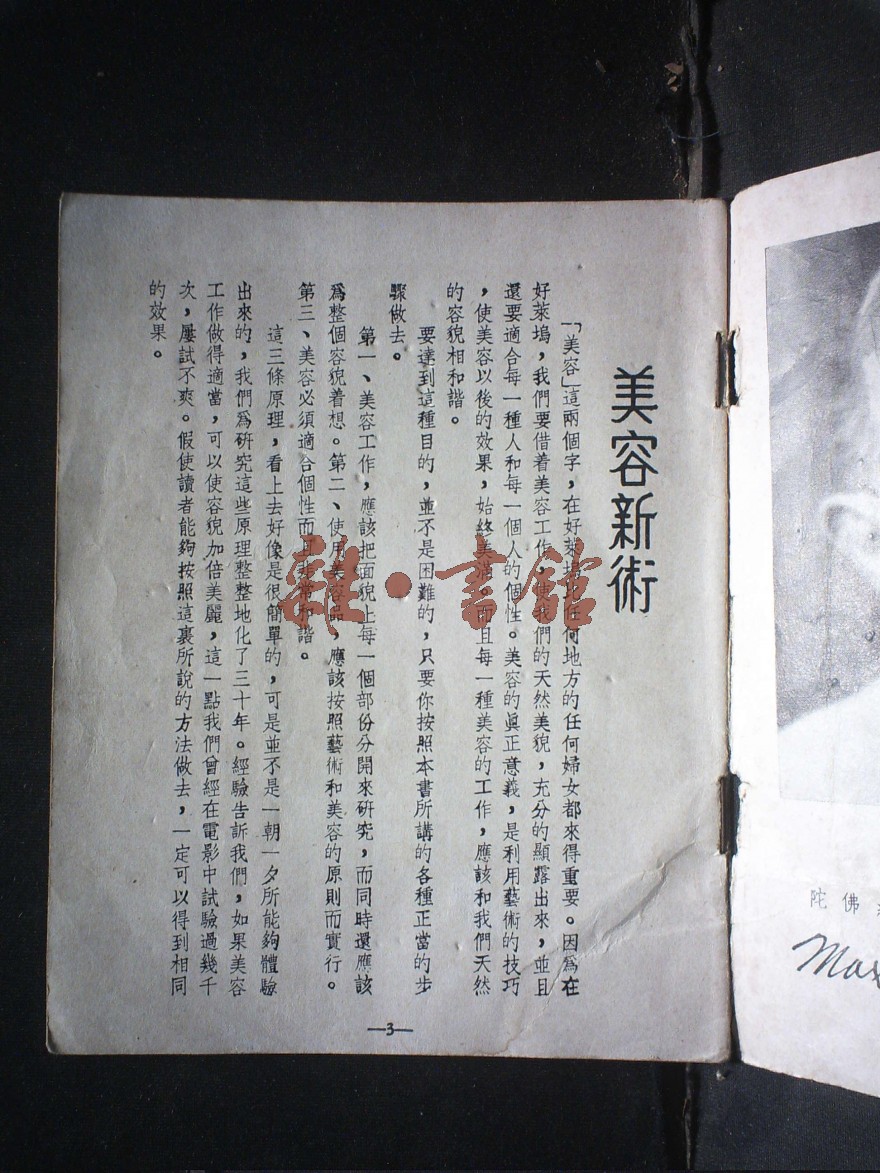 美容新術
「美容」這兩個字，在好萊塢比任何地方的任何婦女都來得重要。因爲在
好萊塢，我們要借着美容工作，使我們的天然美貌，充分的顯露出來，並且
還要適合每一種人和每一個人的個性。美容的眞正意義，是利用藝術的技巧
，使美容以後的效果，始終美滿。而且每一種美容的工作，應該和我們天然
的容貌相和諧。
要達到這種目的，並不是困難的，只要你按照本書所講的各種正當的步
驟做去。
第一、美容工作，應該把面貌上每一個部份分開來研究，而同時還應該
爲整個容貌着想。第二、使用美容品，應該按照藝術和美容的原則而實行。
第三、美容必須適合個性而且非常和諧。
這三條原理，看上去好像是很簡單的，可是並不是一朝一夕所能夠體驗
出來的，我們爲研究這些原理整整地化了三十年。經驗告訴我們，如果美容
工作做得適當，可以使容貌加倍美麗，這一點我們曾經在電影中試驗過幾千
次，屢試不爽。假使讀者能夠按照這裏所說的方法做去，一定可以得到相同
的效果。
—3—
陀佛
Max
雜·書館